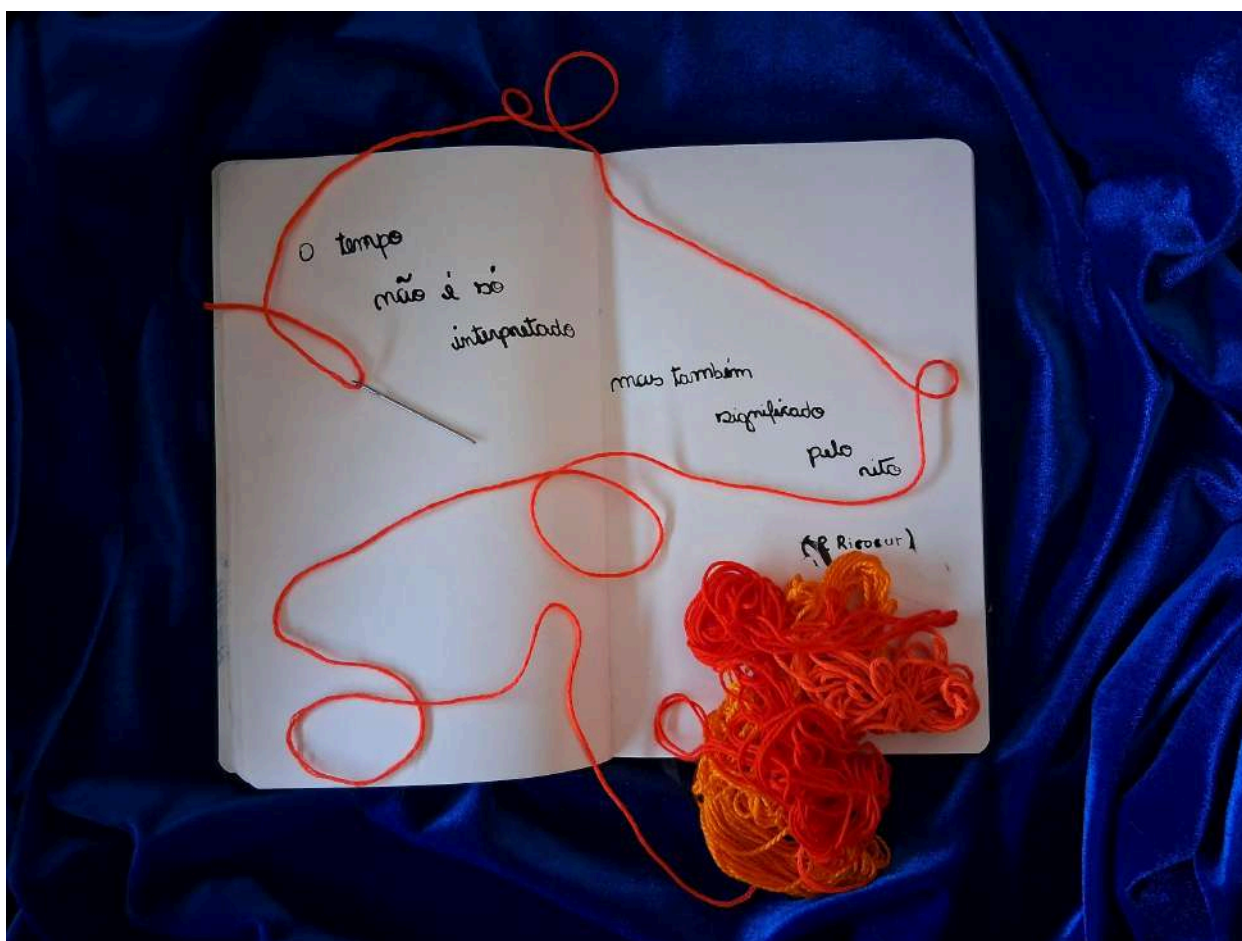 O tempo
não é só
interpretado
mas também
significado
pelo
rito
(P Ricoeur)